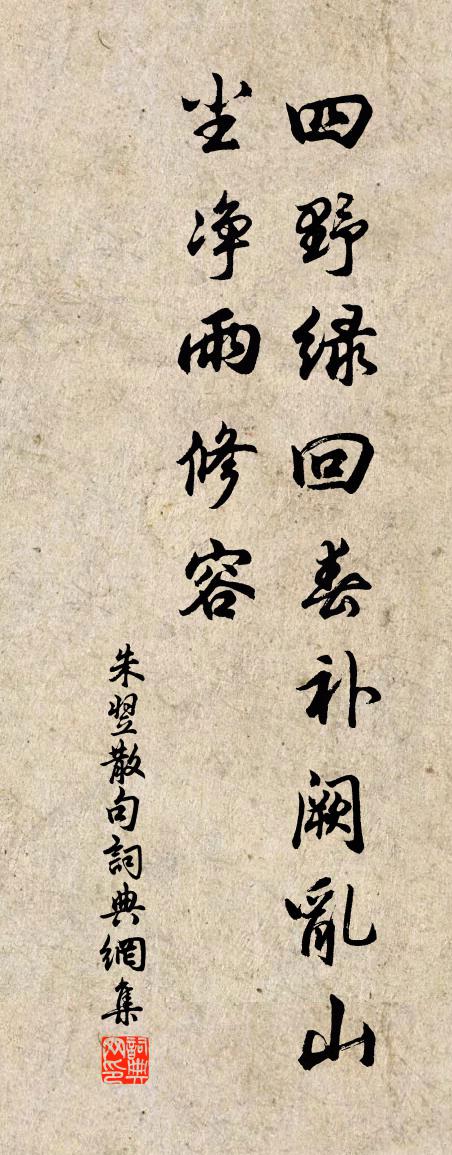 四野绿回春补阙亂山
尘净雨修容
朱翌散句詞典網集
詞典网印